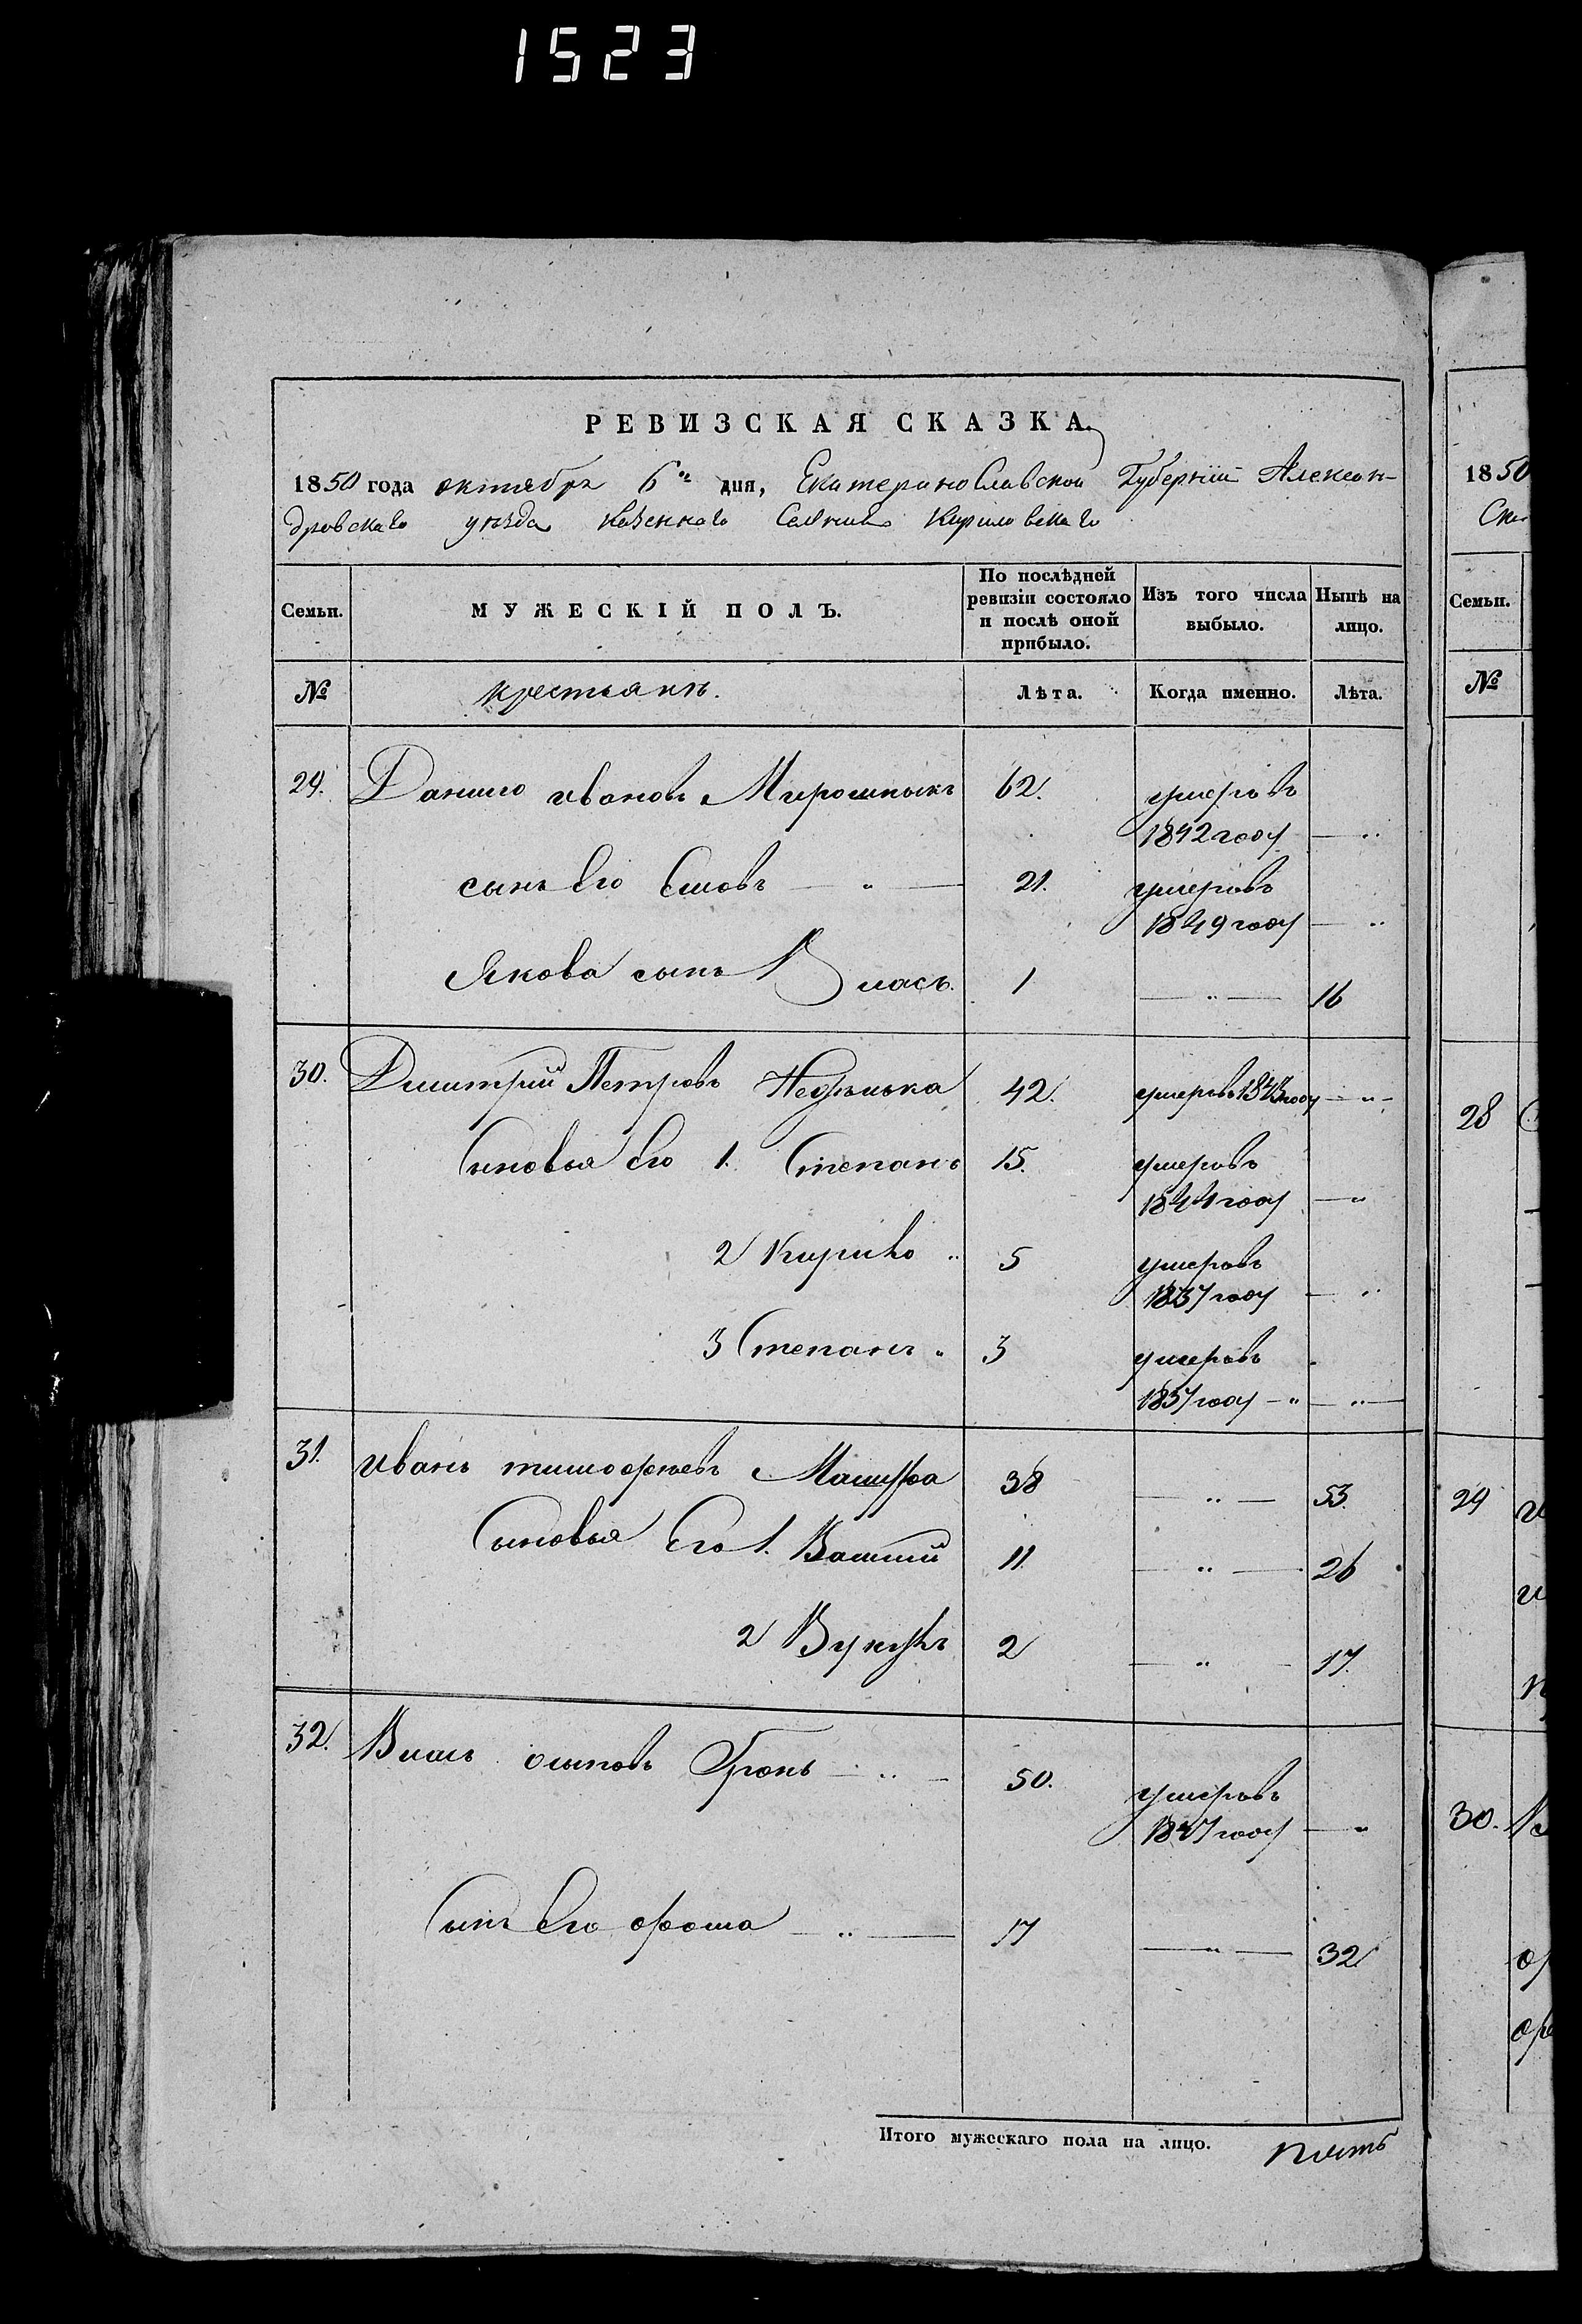 1523
РЕВИЗСКАЯ СКАЗКА.
1850 года октября 6го дня, Екатеринославской Губернии Алексан-
дровского уезда казенного Кириловского
Семьи. МУЖЕСКІЙ ПОЛЪ. По послѣдней ревизіи состояло и послѣ оной прибыло. Изъ того числа выбыло. Нынѣ на лицо.
№ крестьянъ. Лѣта. Когда именно. Лѣта.
29. Данило ивановъ Мирошныкъ 62. умеръ въ
1842 году — "
сынъ Его — " — 21. умеръ въ
1849 году — "
Якова сынъ Власъ. 1 — " — 16
30. Дмитрий Петровъ 42. умеръ въ 1843 году — " —
Сыновья Его 1. Степанъ 15. умеръ въ
1844 году — "
2 Кирило " 5 умеръ въ
1837 году — "
3 Степанъ " 3 умеръ въ
1837 году — " — " —
31. иванъ тимофеевъ 38 — " — 53.
Сыновья Его 1. Василий 11. — " — 26
2 2 — " — 17.
32. Власъ осиповъ — " — 50. умеръ въ
1847 году — "
Сынъ Его фома — " — 17 — " — 32
Итого мужескаго пола на лицо. пять
1850
Семьи.
№
28
29
30.